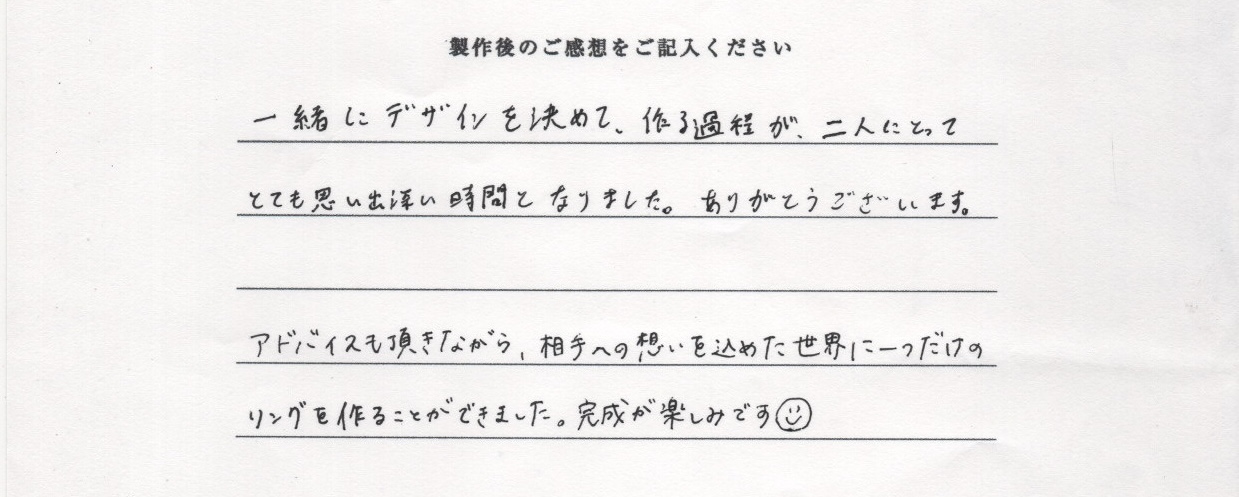 製作後のご感想をご記入ください
一緒にデザインを決めて、作る過程が、二人にとって
とても思い出深い時間となりました。ありがとうございます。
アドバイスも頂きながら、相手への想いを込めた世界に一つだけの
リングを作ることができました。完成が楽しみです☺